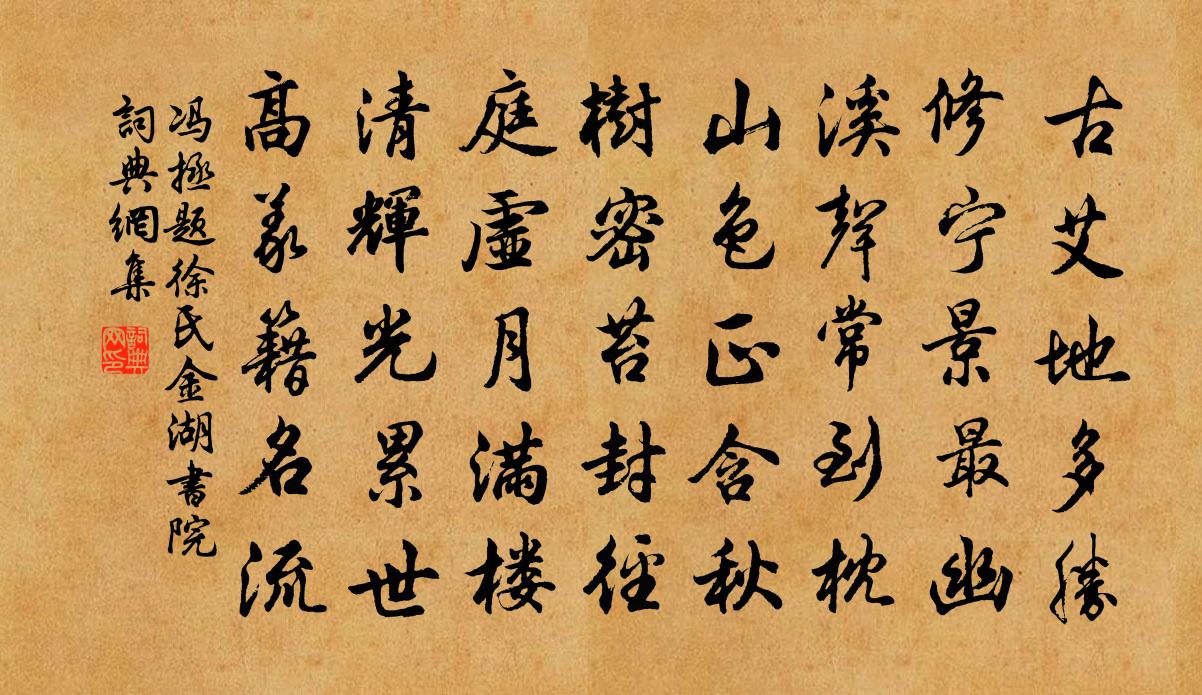 古艾地多勝
修宁景最幽
溪聲常到枕
山色正含秋
樹密苔封徑
庭虛月满楼
清輝光累世
高義籍名流
冯拯题徐氏金湖書院
詞典網集
詞典网印